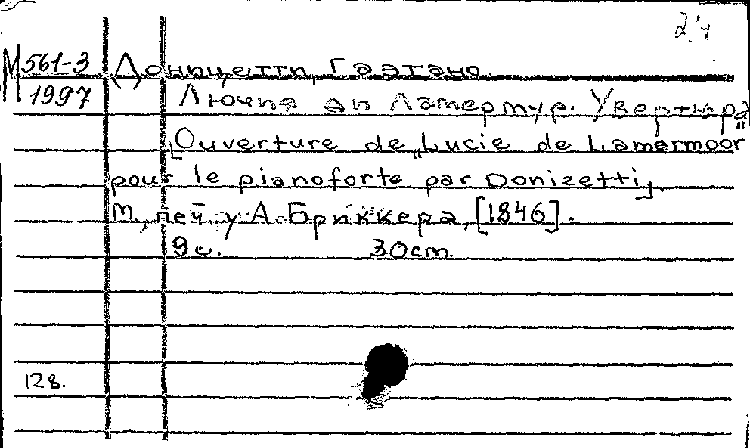 М 561-3 Доницетти, Гаэтано
1997 Лючия ди Ламермур. Увертюра
[Ouverture de „Lucie de Lamermoor"
pour le pianoforte par Donizetti].
М., печ. у А. Бриккера, [1846].
9 с. 30 cm.
128.